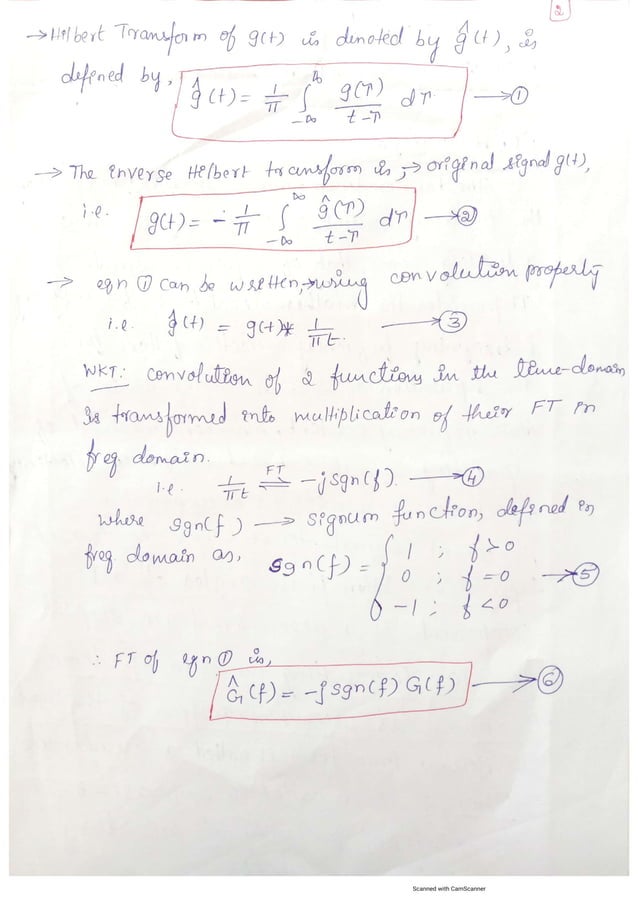 2
→ Hilbert Transform of g(t) is denoted by ĝ(t), is
defined by, ĝ(t) = 1/π ∫_{-∞}^{∞} g(τ)/(t-τ) dτ → ①
→ The inverse Hilbert transform is, → original signal g(t),
i.e. g(t) = - 1/π ∫_{-∞}^{∞} ĝ(τ)/(t-τ) dτ → ②
→ eqn ① can be written, → using convolution property
i.e. ĝ(t) = g(t) * 1/πt. → ③
WKT: convolution of 2 functions in the time-domain
is transformed into multiplication of their FT in
freq. domain.
i.e. 1/πt ⇌ FT -j sgn(f). → ④
where sgn(f) → signum function, defined in
freq. domain as, sgn(f) = { 1 ; f > 0
0 ; f = 0 → ⑤
-1 ; f < 0
∴ FT of eqn ① is,
Ĝ(f) = -j sgn(f) G(f) → ⑥
Scanned with CamScanner